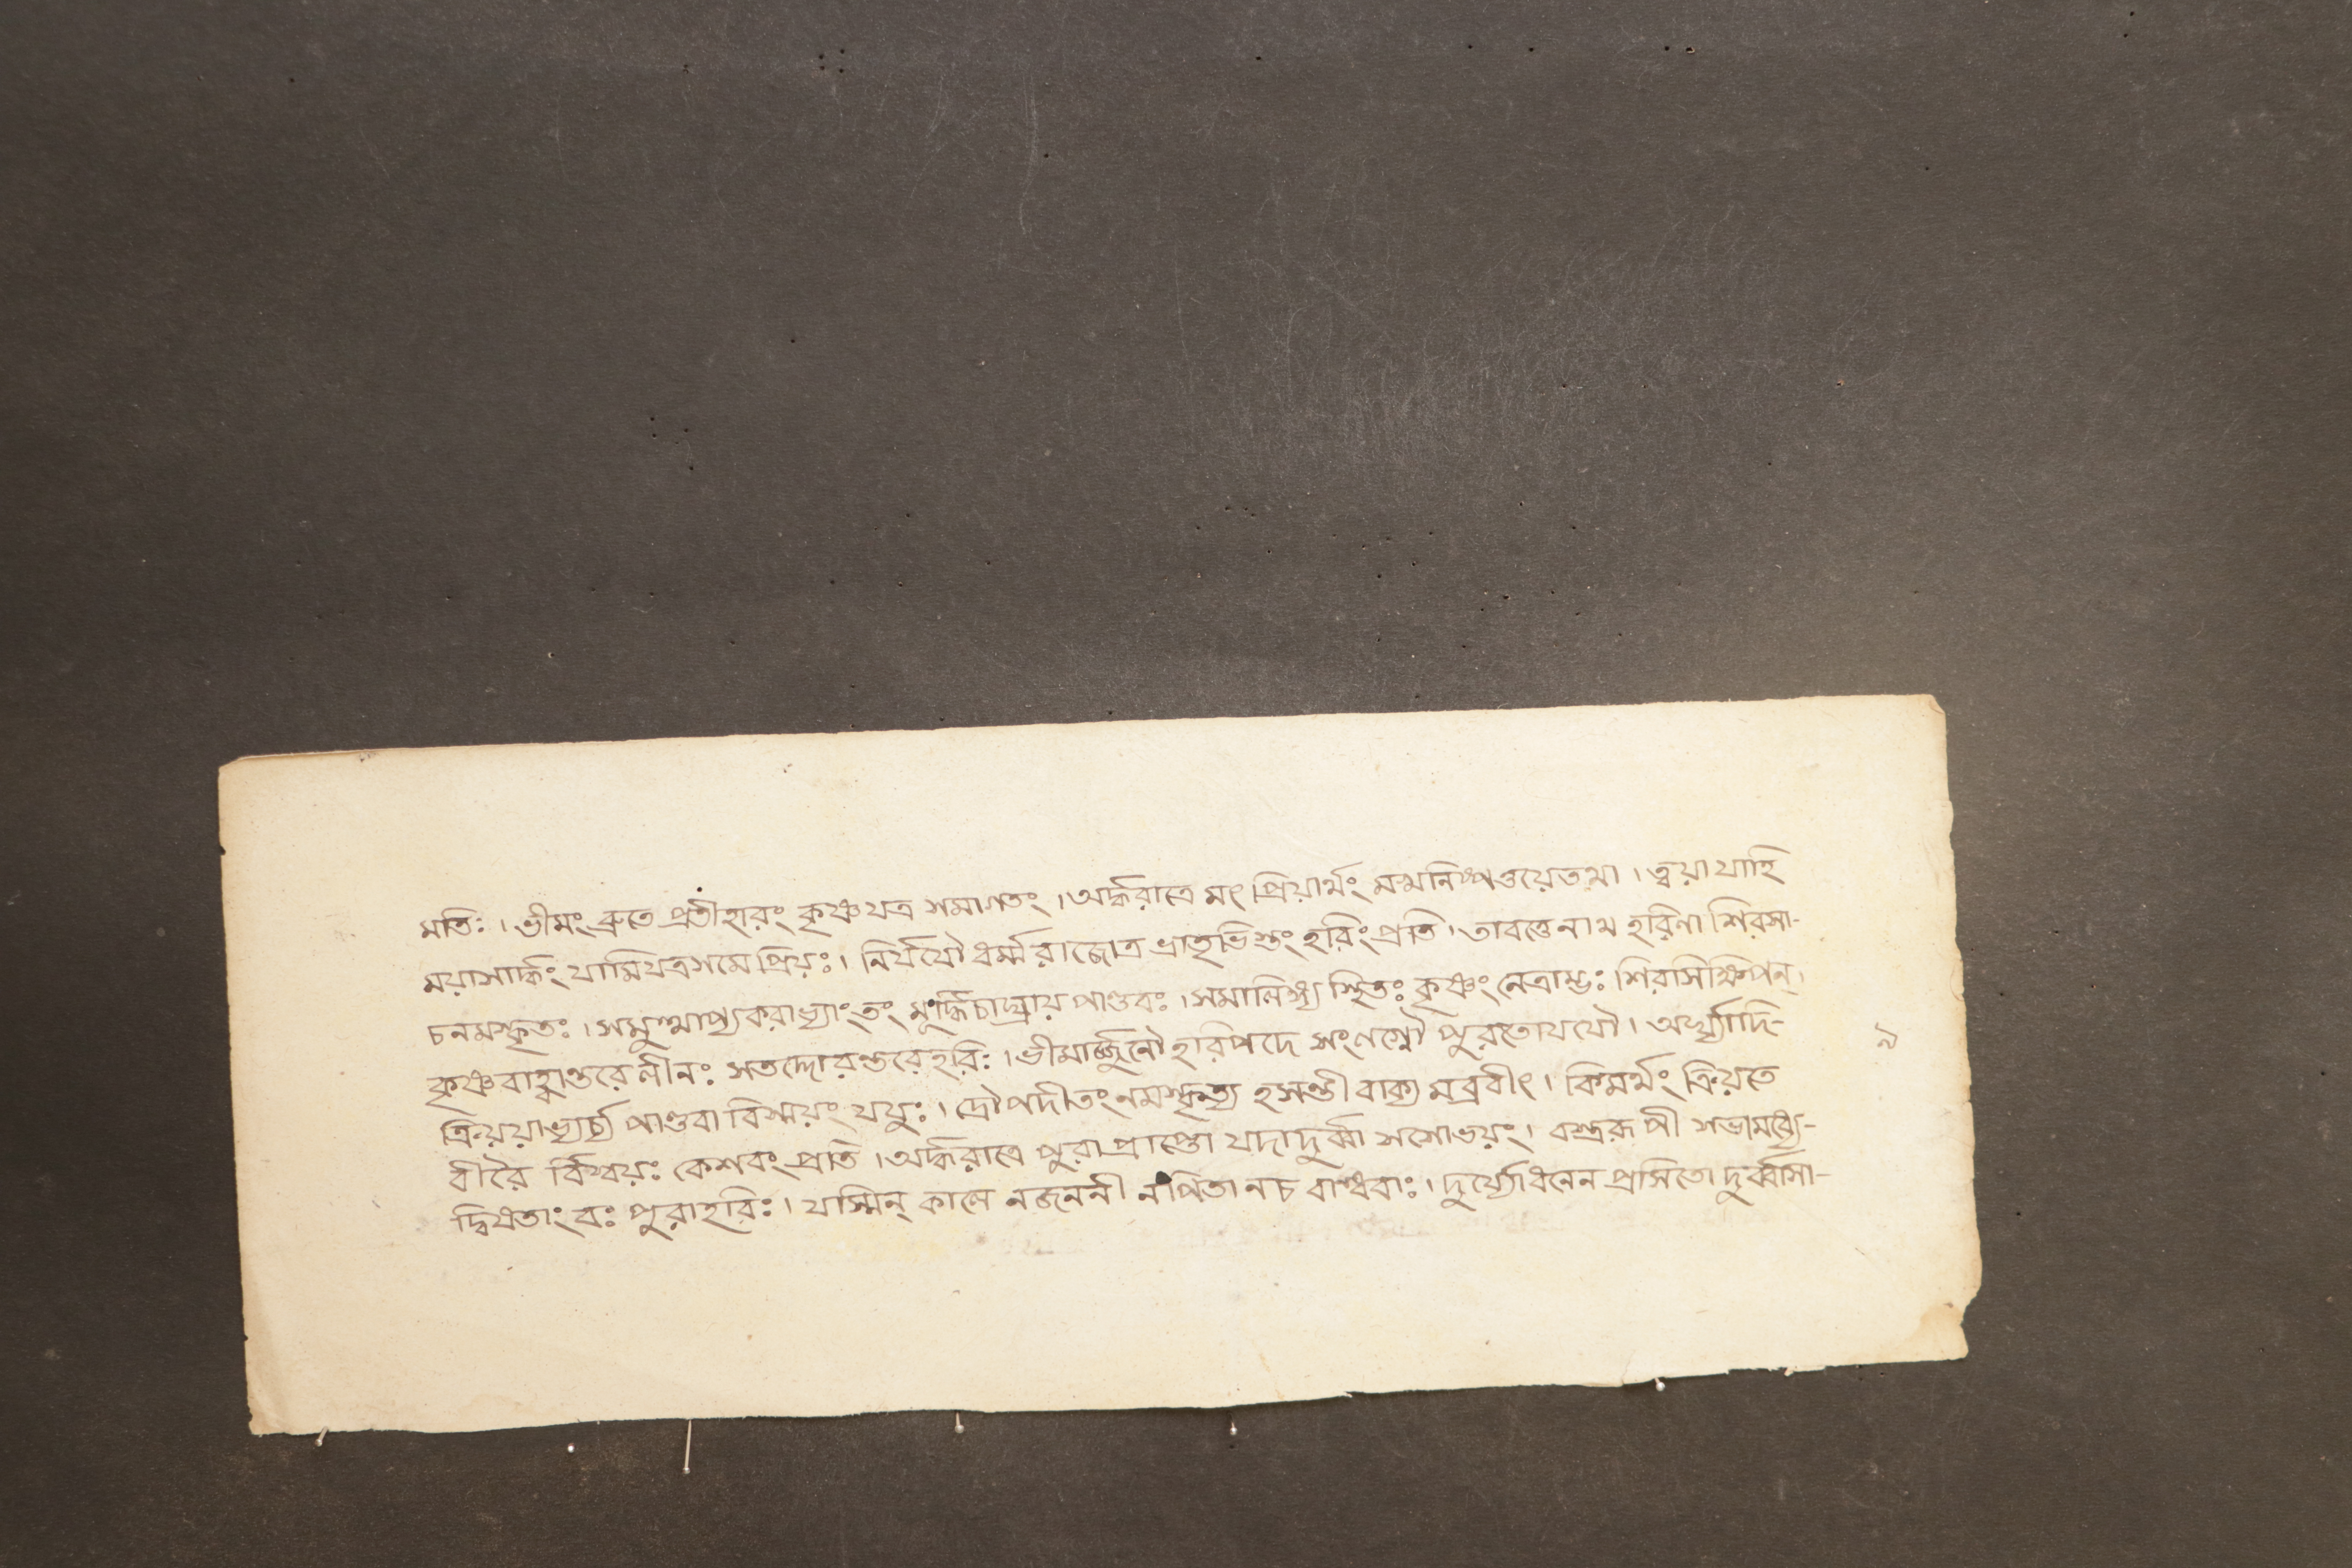 মতিঃ। ভীমং ব্রুতে প্রতীহারং কৃষ্ণ যত্র সমাগতং। অর্দ্ধরাত্রে মৎ প্রিয়ার্থং মন্মনিষ্পত্তয়ে তথা। ত্বয়া যাহি
ময়াসার্দ্ধং যামি যত্র সমে প্রিয়ঃ। নির্যযৌ ধর্ম্মরাজোত্র ভ্রাতৃভিস্তং হরিং প্রতি। তাবত্তেনাথ হরিণা শিরসা-
চ নমস্কৃতঃ। সমুত্থাপ্য করাভ্যাং তং মূর্দ্ধ্নি চাঘ্রায় পাণ্ডবঃ। সমালিঙ্গ্য স্থিতঃ কৃষ্ণং নেত্রাম্ভঃ শিরসি ক্ষিপন্।
কৃষ্ণ বাহ্বান্তরে লীনঃ সতদ্দোরন্তরে হরিঃ। ভীমার্জ্জুনৌ হরিপদে সংলগ্নৌ পুরতো যযৌ। অর্ঘ্যাদি-
ক্রিয়য়াভ্যর্চ্য পাণ্ডবা বিস্ময়ং যযুঃ। দ্রৌপদী তং নমস্কৃত্য হসন্তী বাক্য মব্রবীৎ। কিমর্থং ক্রিয়তে
বীরৈ র্বিস্ময়ঃ কেশবং প্রতি। অর্দ্ধরাত্রে পুরা প্রাপ্তো যদা দুর্ব্বা সসোভয়ং। বস্ত্ররূপী সভামধ্যে-
দ্বিষতাং বঃ পুরা হরিঃ। যস্মিন্ কালে ন জননী ন পিতা ন চ বান্ধবাঃ। দুর্য্যোধনেন প্রসিতো দুর্ব্বাসা-
৯